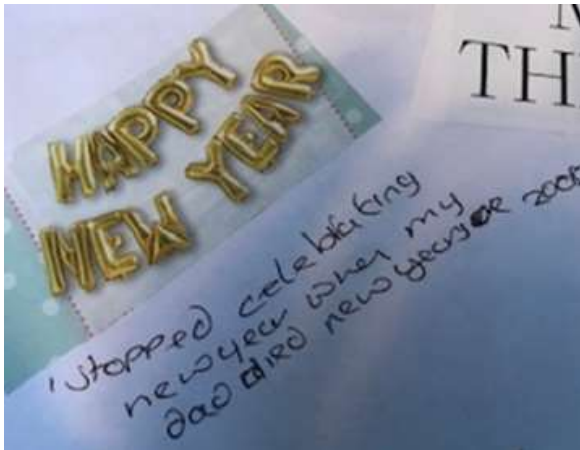 HAPPY
NEW YEAR
TH
i stopped celebrating
new year when my
dad died new years